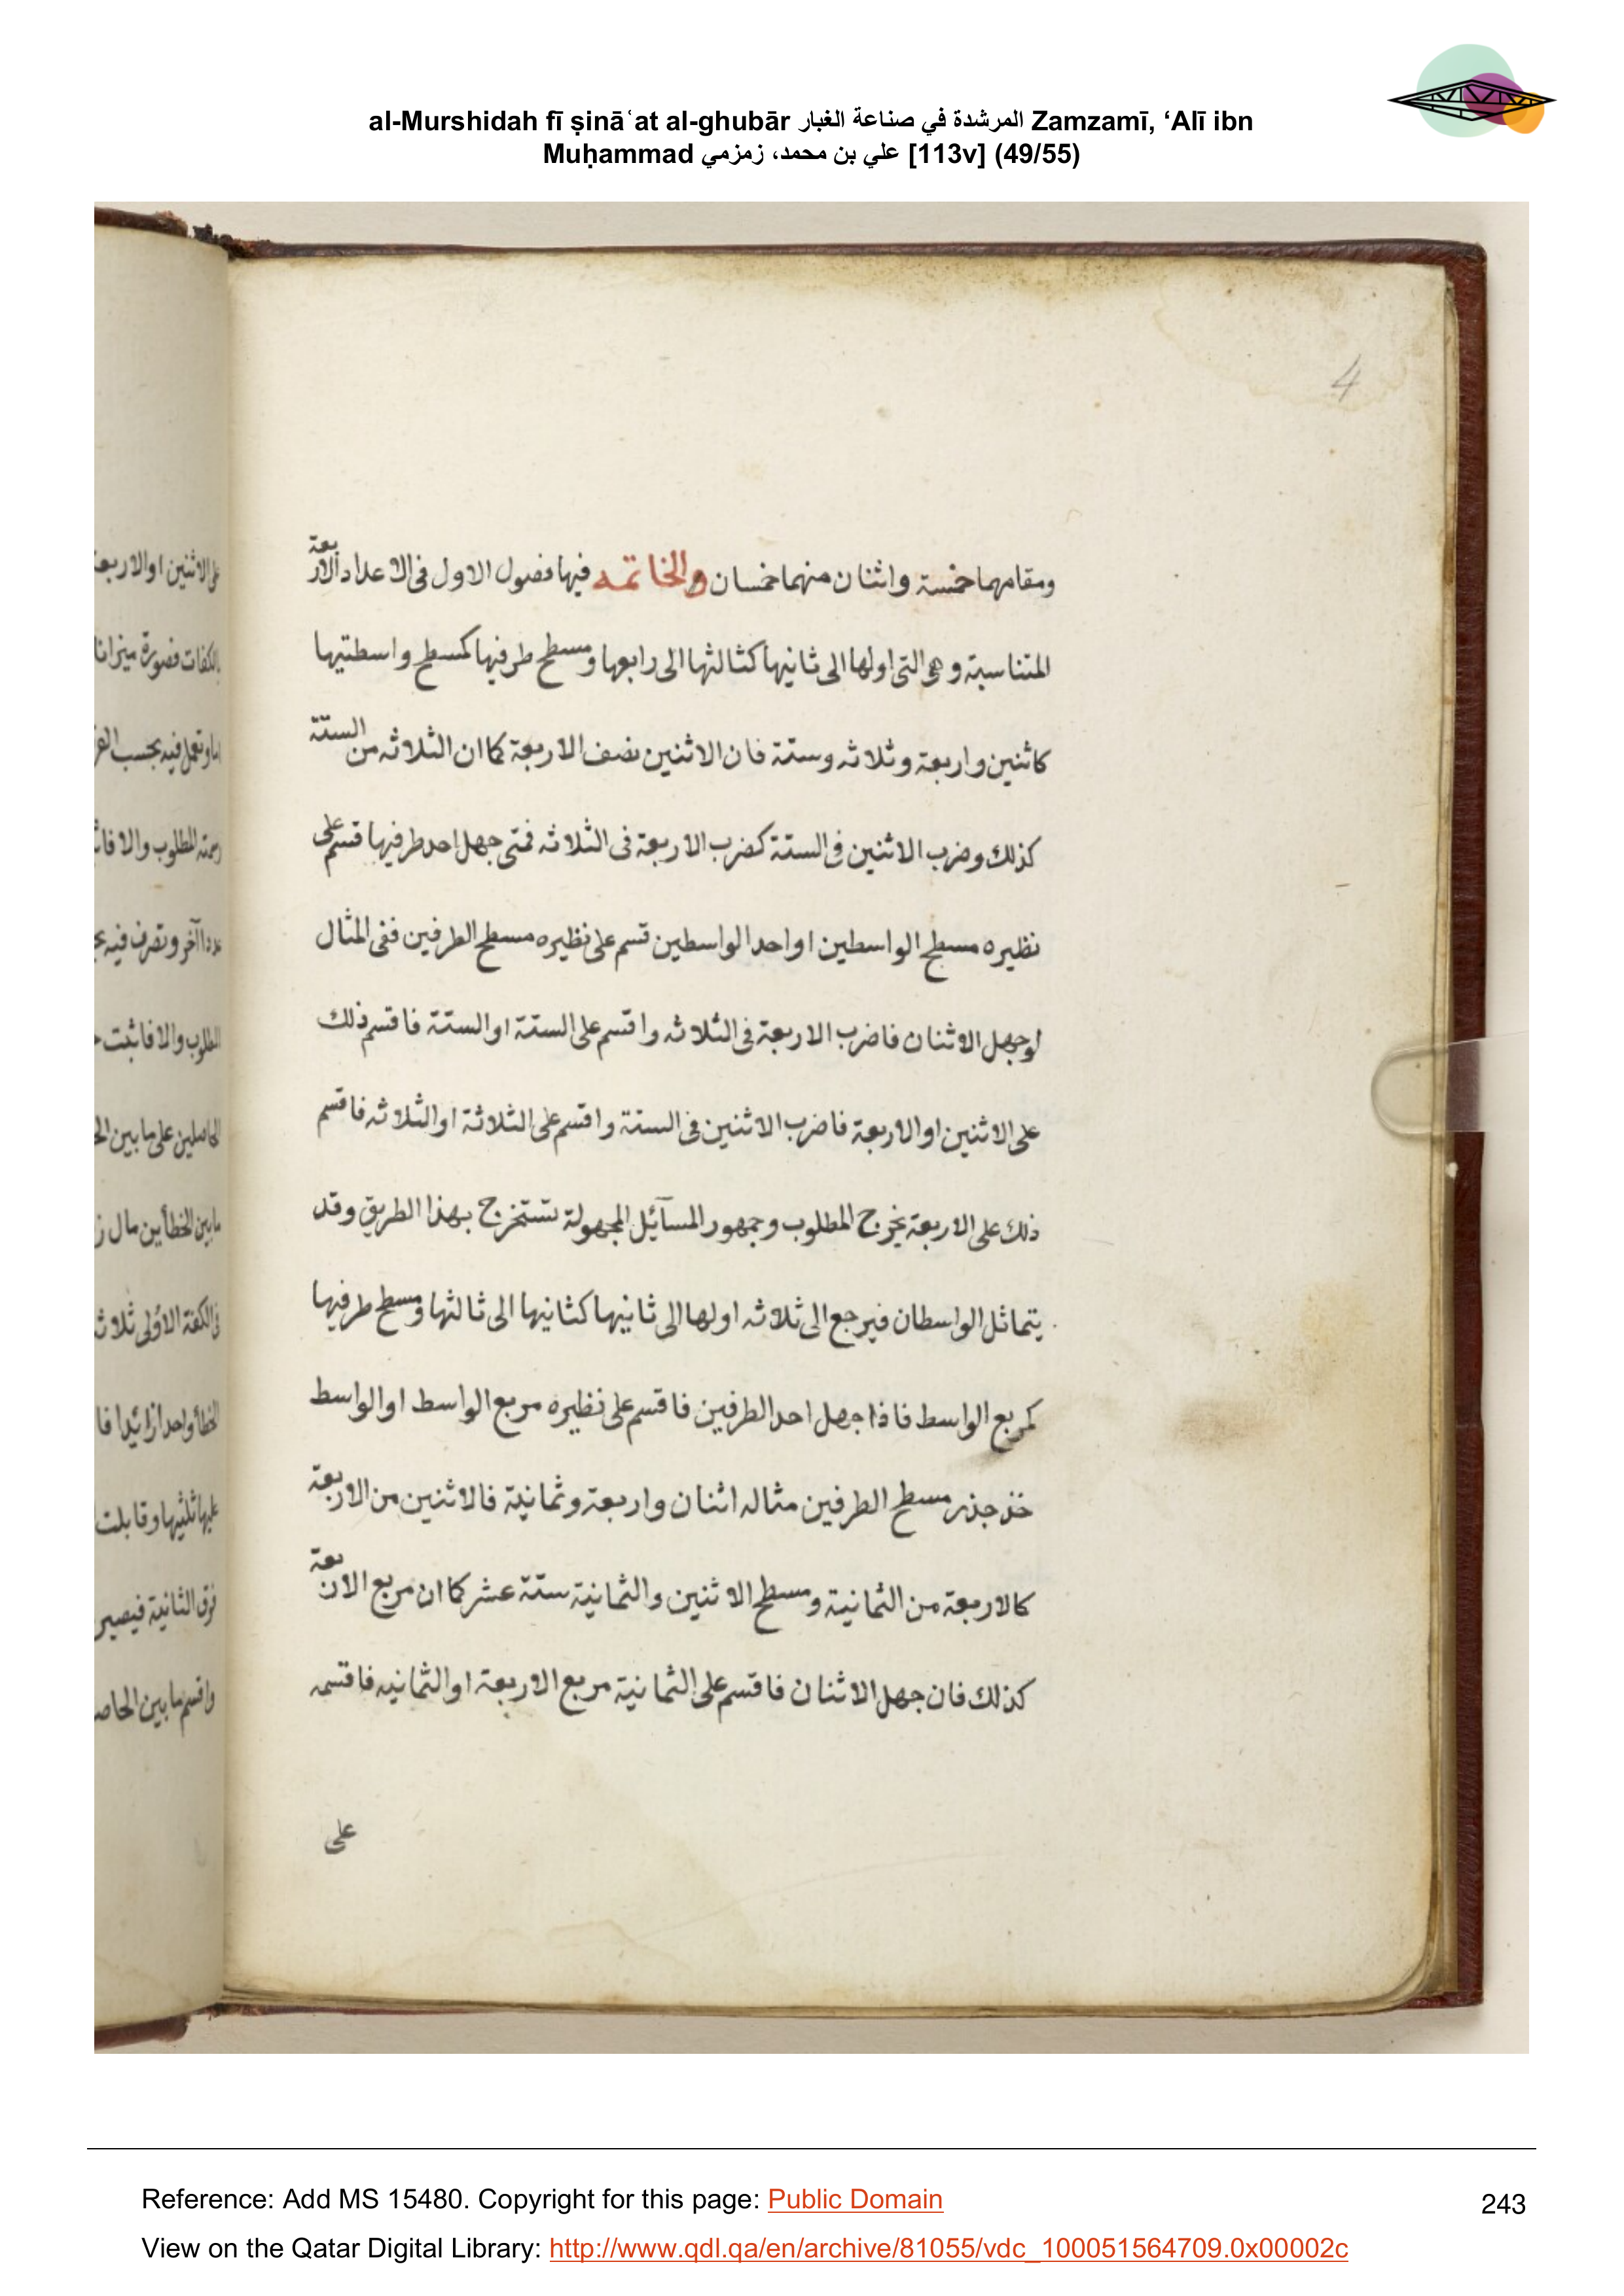 al-Murshidah fī ṣināʿat al-ghubār المرشدة في صناعة الغبار Zamzamī, ‘Alī ibn
Muḥammad علي بن محمد، زمزمي [113v] (49/55)
4
ومقامهما خمسة واثنان منهما خمسان والخاتمه فيها فصول الاول فى الاعداد الاربعة
المتناسبة وهى التى اولها الى ثانيها كثالثها الى رابعها ومسطح طرفيها كمسطح واسطتيها
كاثنين واربعة وثلاثه وستة فان الاثنين نصف الاربعة كما ان الثلاثه من الستة
كذلك وضرب الاثنين فى الستة كضرب الاربعة فى الثلاثه فمتى جهل احد طرفيها قسم على
نظيره مسطح الواسطين او احد الواسطين قسم على نظيره مسطح الطرفين ففى المثال
لو جهل الاثنان فاضرب الاربعة فى الثلاثه واقسم على الستة او الستة فاقسم ذلك
على الاثنين او الاربعة فاضرب الاثنين فى الستة واقسم على الثلاثة او الثلاثه فاقسم
ذلك على الاربعة يخرج المطلوب وجمهور المسآئل المجهولة تستخرج بهذا الطريق وقد
يتماثل الواسطان فيرجع الى ثلاثه اولها الى ثانيها كثانيها الى ثالثها ومسطح طرفيها
كمربع الواسط فاذا جهل احد الطرفين فاقسم على نظيره مربع الواسط او الواسط
خذ جذر مسطح الطرفين مثاله اثنان واربعة وثمانية فالاثنين من الاربعة
كالاربعة من الثمانية ومسطح الاثنين والثمانية ستة عشر كما ان مربع الاربعة
كذلك فان جهل الاثنان فاقسم على الثمانية مربع الاربعة او الثمانيه فاقسمه
على
على الاثنين او الاربعة
بالكفات فصورة ميزانا
المطلوب والا
آخر وتصرف فيه
المطلوب والا فاثبت
الحاصلين على ما بين
ما بين الخطأين مال
فى الكفة الاولى
الخطأ واحدا زائدا فا
عليها ثلثيها وقابلت
فوق الثانية فيصير
واقسم ما بين
Reference: Add MS 15480. Copyright for this page: Public Domain
243
View on the Qatar Digital Library: http://www.qdl.qa/en/archive/81055/vdc_100051564709.0x00002c